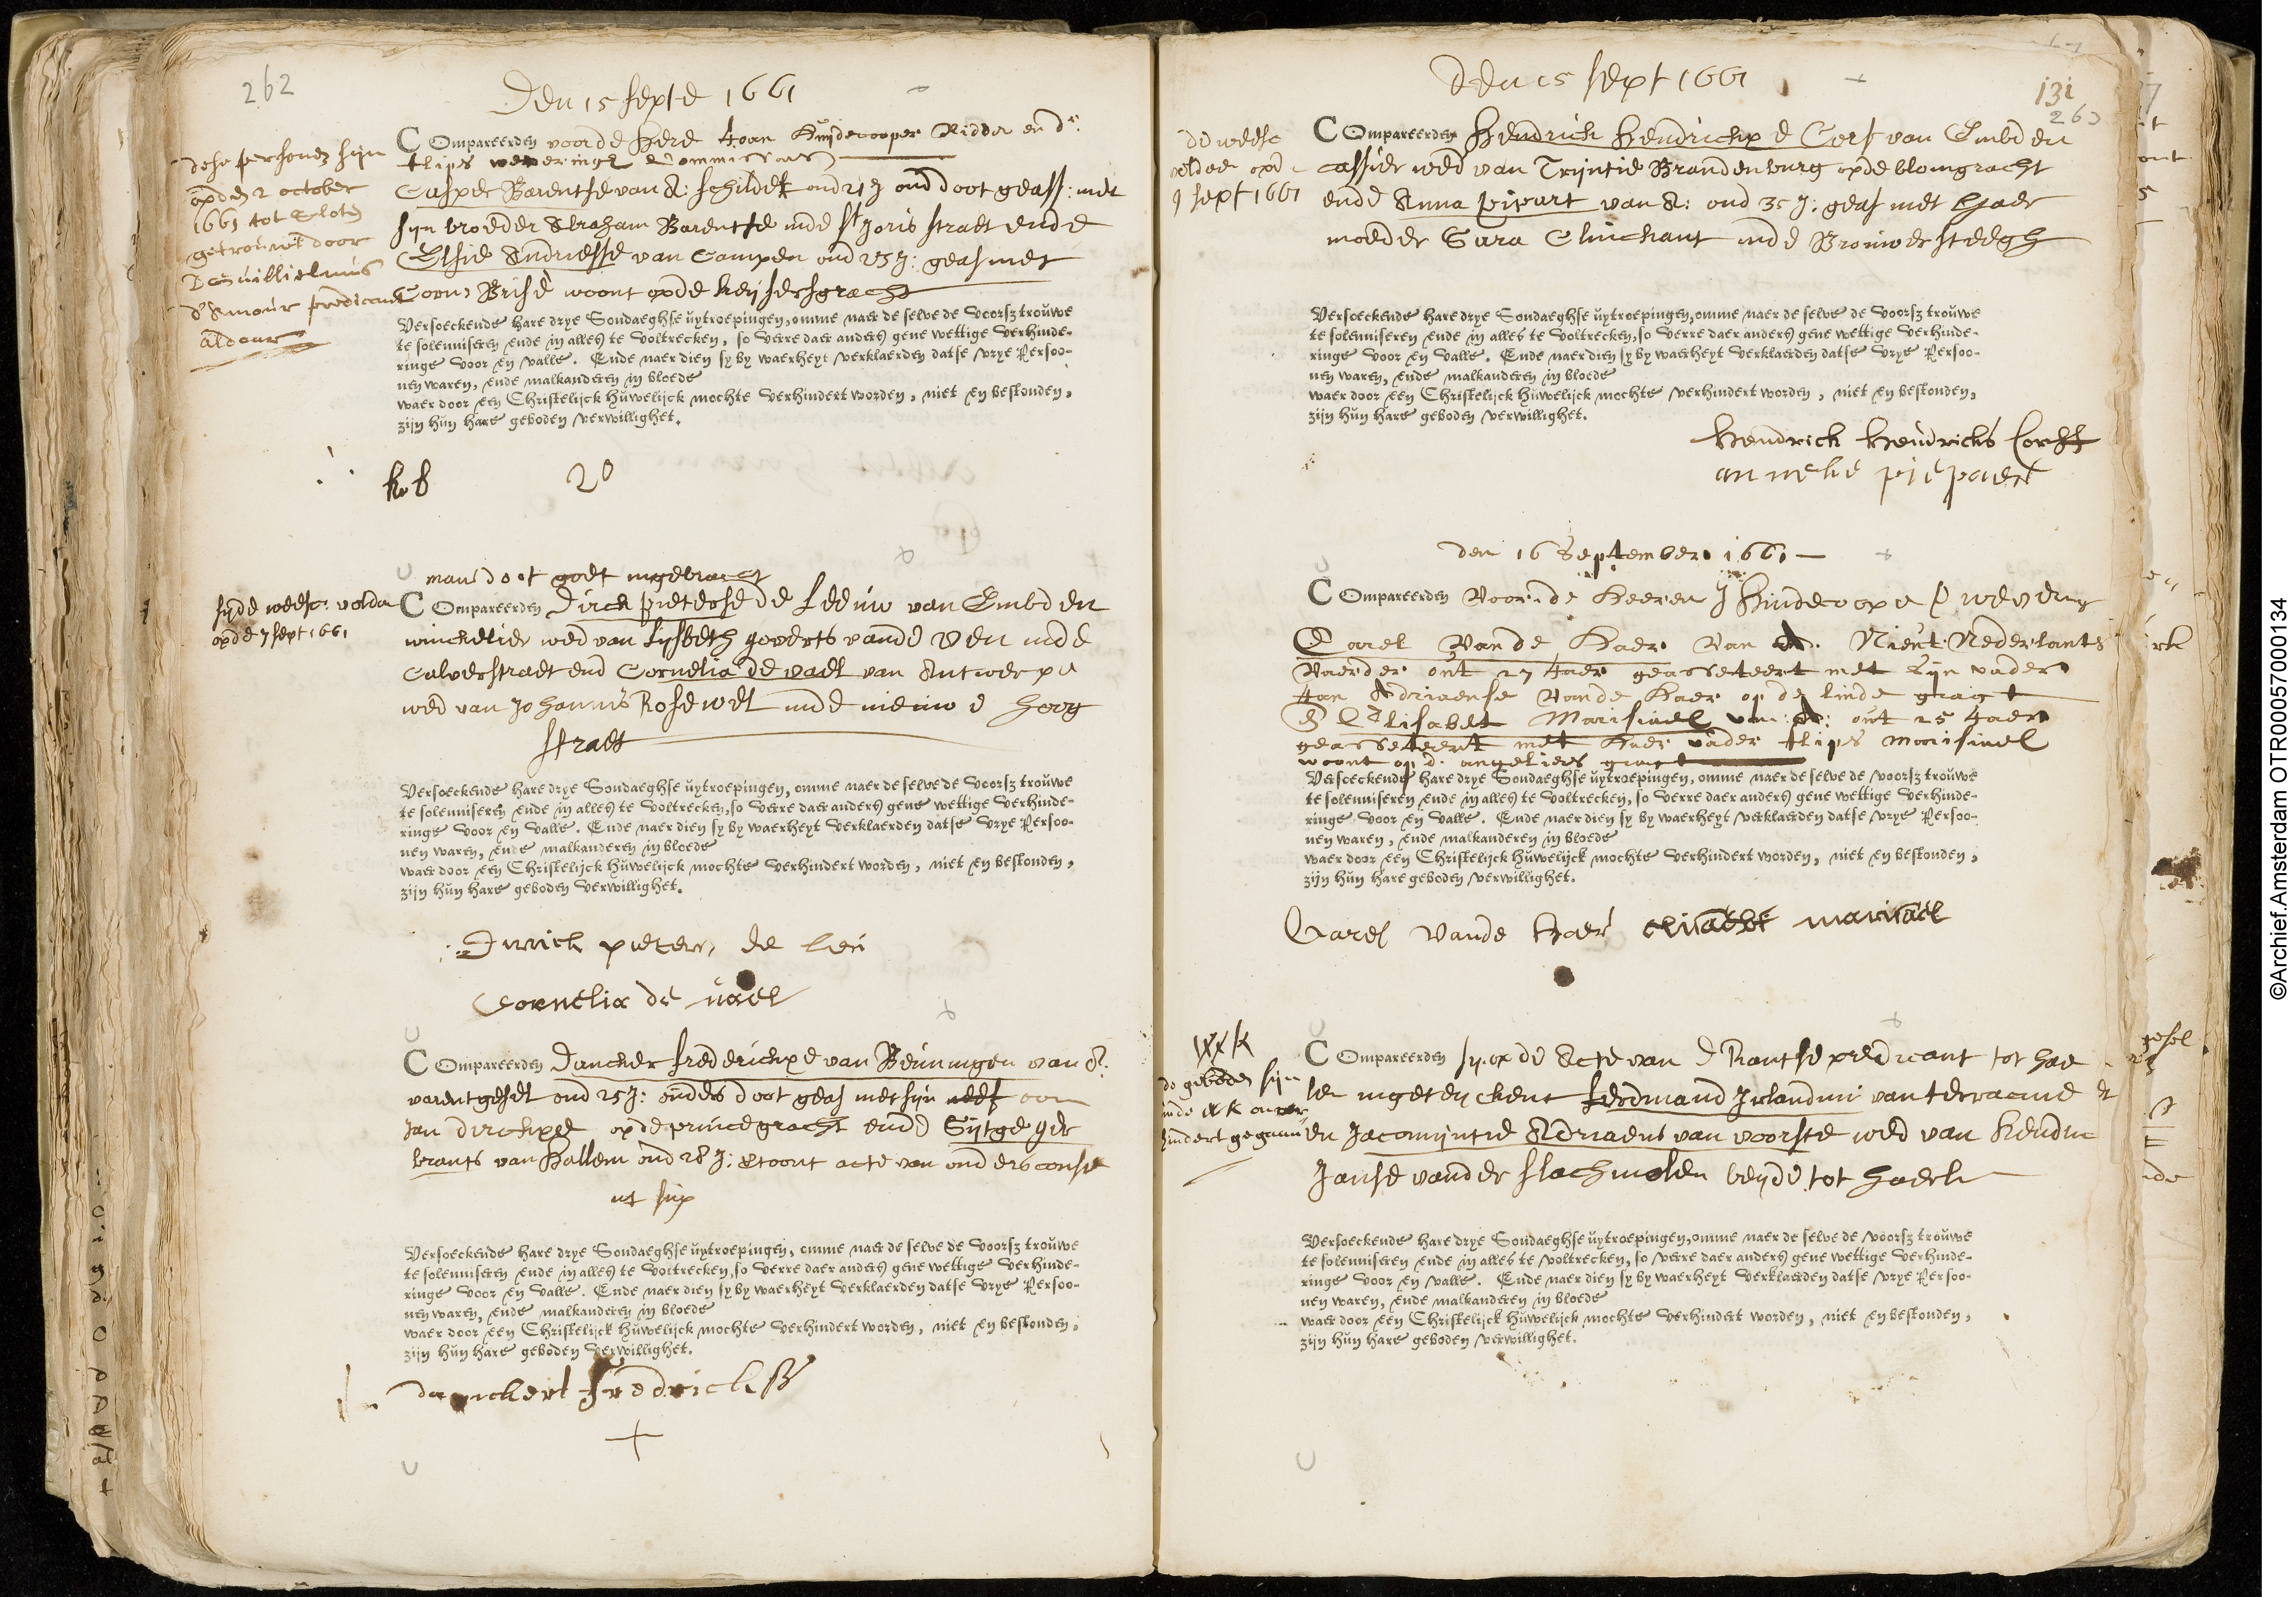 262
Den 15 septe 1661
dese persoonen sijn
op den 2 october
1661 tot Sloten
getrouwt door
D Guillielmus
d'Amour predicant
aldaar
COmpareerden voor de Here Joan Huijdecooper Ridder en dr.
flips weveringe Commissars
Casper Barentse van A: schilder oud 21 J oud doot geass: met
sijn broeder Abraham Barentse inde St Joris straet ende
Elsie Andriesse van Campen oud 23 J: geas met
Coens Brise woont opde keijsersgracht
Versoeckende hare drye Sondaeghse uytroepingen, omme naer de selve de Voorsz trouwe
te solenniseren ende in alles te Voltrecken, so Verre daer anders gene wettige Verhinde-
ringe Voor en Valle. Ende naer dien sy by waerheyt Verklaerden datse Vrye Persoo-
nen waren, ende malkanderen in bloede
waer door een Christelijck Huwelijck mochte Verhindert worden, niet en bestonden,
zijn hun hare geboden verwillighet.
20
mans doot goet ingebracht
sijde weesc: volda
opde 7 sept 1661
COmpareerden Dirck pieterse de Leeuw van Embden
winckelier wed van Lijsbeth goverts vande Ven inde
Calverstraet end Cornelia de vael van Antwerpe
wed van Johannis Rosewel inde nieuwe hoog
straet
Versoeckende hare drye Sondaeghse uytroepingen, omme naer de selve de Voorsz trouwe
te solenniseren ende in alles te Voltrecken, so Verre daer anders gene wettige Verhinde-
ringe Voor en Valle. Ende naer dien sy by waerheyt Verklaerden datse Vrye Persoo-
nen waren, ende malkanderen in bloede
waer door een Christelijck Huwelijck mochte Verhindert worden, niet en bestonden,
zijn hun hare geboden Verwillighet.
pieters de
Cornelia de vael
COmpareerden Dancker frederickxe van Beuningen van A:
varentgesel oud 25 J: ouders doot geas met sijn neef oom
Jan Dirckxe opde princegracht ende Sijtge ger
brants van Hallem oud 28 J: toont acte van ouders conse
ut sup
Versoeckende hare drye Sondaeghse uytroepingen, omme naer de selve de Voorsz trouwe
te solenniseren ende in alles te Voltrecken, so Verre daer anders gene wettige Verhinde-
ringe Voor en Valle. Ende naer dien sy by waerheyt Verklaerden datse Vrye Persoo-
nen waren, ende malkanderen in bloede
waer door een Christelijck Huwelijck mochte Verhindert worden, niet en bestonden,
zijn hun hare geboden Verwillighet.
danckert fredrickss
Den 15 sept 1661
131
263
de weesc
voldae opd
9 sept 1661
COmpareerden Hendrick Hendrickx de Cors van Embden
cassier wed van Trijntie Brandenburg opde blomgracht
ende Anna pipart van A: oud 35 J: geas met haer
moeder Sara Clinchant inde Brouwersteegh
Versoeckende hare drye Sondaeghse uytroepingen, omme naer de selve de Voorsz trouwe
te solenniseren ende in alles te Voltrecken, so Verre daer anders gene wettige Verhinde-
ringe Voor en Valle. Ende naer dien sy by waerheyt Verklaerden datse Vrye Perso-
nen waren, ende malkanderen in bloede
waer door een Christelijck Huwelijck mochte Verhindert worden, niet en bestonden,
zijn hun hare geboden verwillighet.
Hendrick Heindricks
anneke piepaert
den 16 September 1661
COmpareerden Voor de Heeren J Huidecoper
Carel Vande Haer Van A. Nieut Nederlants
Vaerder out 27 Jaer geasseteert met Sijn vader
Jan Adriaense Vande Haer op de linde gragt
E Elisabet Marisael van A: out 25 Jaer
geasseteert met haer vader flips Marisael
woont op d. angeliers gragt
Versoeckende hare drye Sondaeghse uytroepingen, omme naer de selve de Voorsz trouwe
te solenniseren ende in alles te Voltrecken, so Verre daer anders gene wettige Verhinde-
ringe Voor en Valle. Ende naer dien sy by waerheyt Verklaerden datse Vrye Persoo-
nen waren, ende malkanderen in bloede
waer door een Christelijck Huwelijck mochte Verhindert worden, niet en bestonden,
zijn hun hare geboden verwillighet.
Carel Vande Haer elisaebt marisael
de geboden sijn
inde kk onver
hindert gegaen
COmpareerden op de Acte van predicant tot hae
lem ingeteijckent ferdinand
en Jacomijntie Adriaens van voorste wed van Hendric
Janse vander slachmolen beijde tot haerle
Versoeckende hare drye Sondaeghse uytroepingen, omme naer de selve de Voorsz trouwe
te solenniseren ende in alles te Voltrecken, so Verre daer anders gene wettige Verhinde-
ringe Voor en Valle. Ende naer dien sy by waerheyt Verklaerden datse Vrye Persoo-
nen waren, ende malkanderen in bloede
waer door een Christelijck Huwelijck mochte Verhindert worden, niet en bestonden,
zijn hun hare geboden verwillighet.
©Archief.Amsterdam OTR00057000134